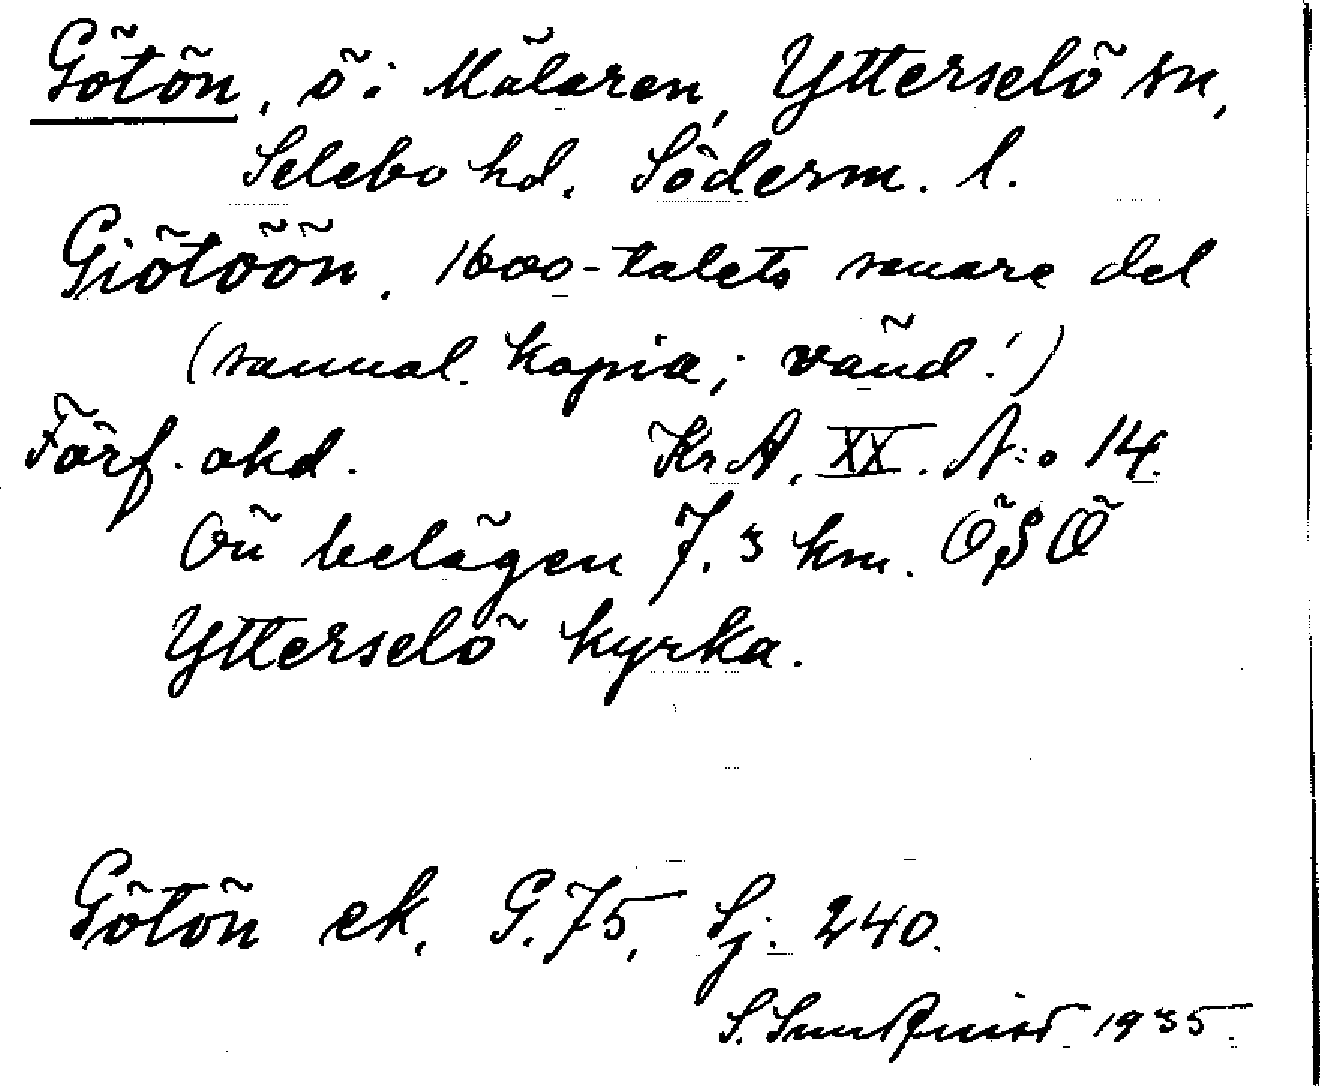 Götön, ö i Mälaren, Ytterselö sn,
Selebo hd. Söderm. l.
Giötöön. 1600-talets senare del
(samal. kopia; vänd!)
Förf. okd. Kr.A. XX. N:o 14.
Ön belägen 7.3 km. ÖSÖ
Ytterselö kyrka.
Götön ek. G.75, Sj. 240.
1935.